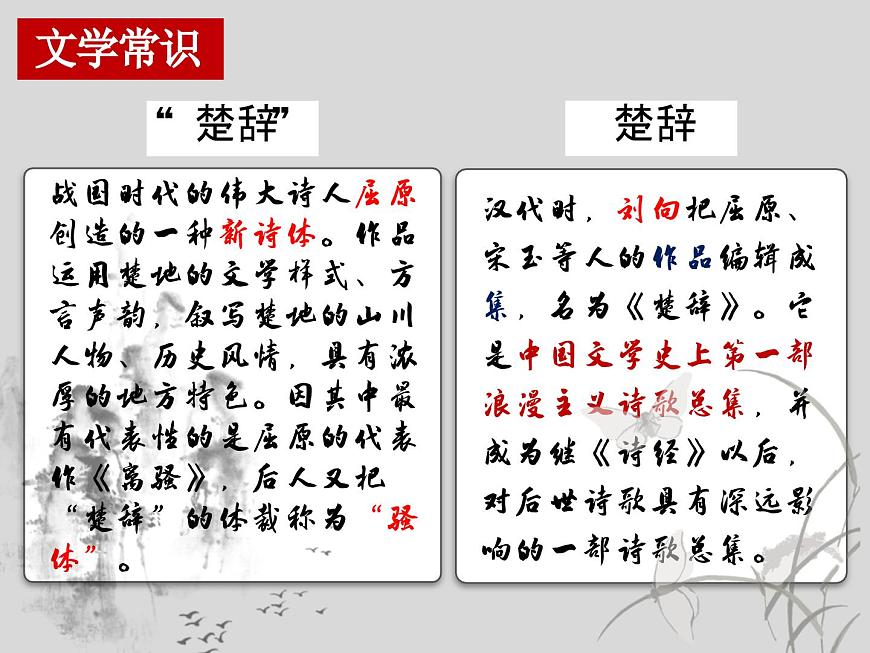 文学常识
“楚辞”
战国时代的伟大诗人屈原
创造的一种新诗体。作品
运用楚地的文学样式、方
言声韵，叙写楚地的山川
人物、历史风情，具有浓
厚的地方特色。因其中最
有代表性的是屈原的代表
作《离骚》，后人又把
“楚辞”的体裁称为“骚
体”。
楚辞
汉代时，刘向把屈原、
宋玉等人的作品编辑成
集，名为《楚辞》。它
是中国文学史上第一部
浪漫主义诗歌总集，并
成为继《诗经》以后，
对后世诗歌具有深远影
响的一部诗歌总集。